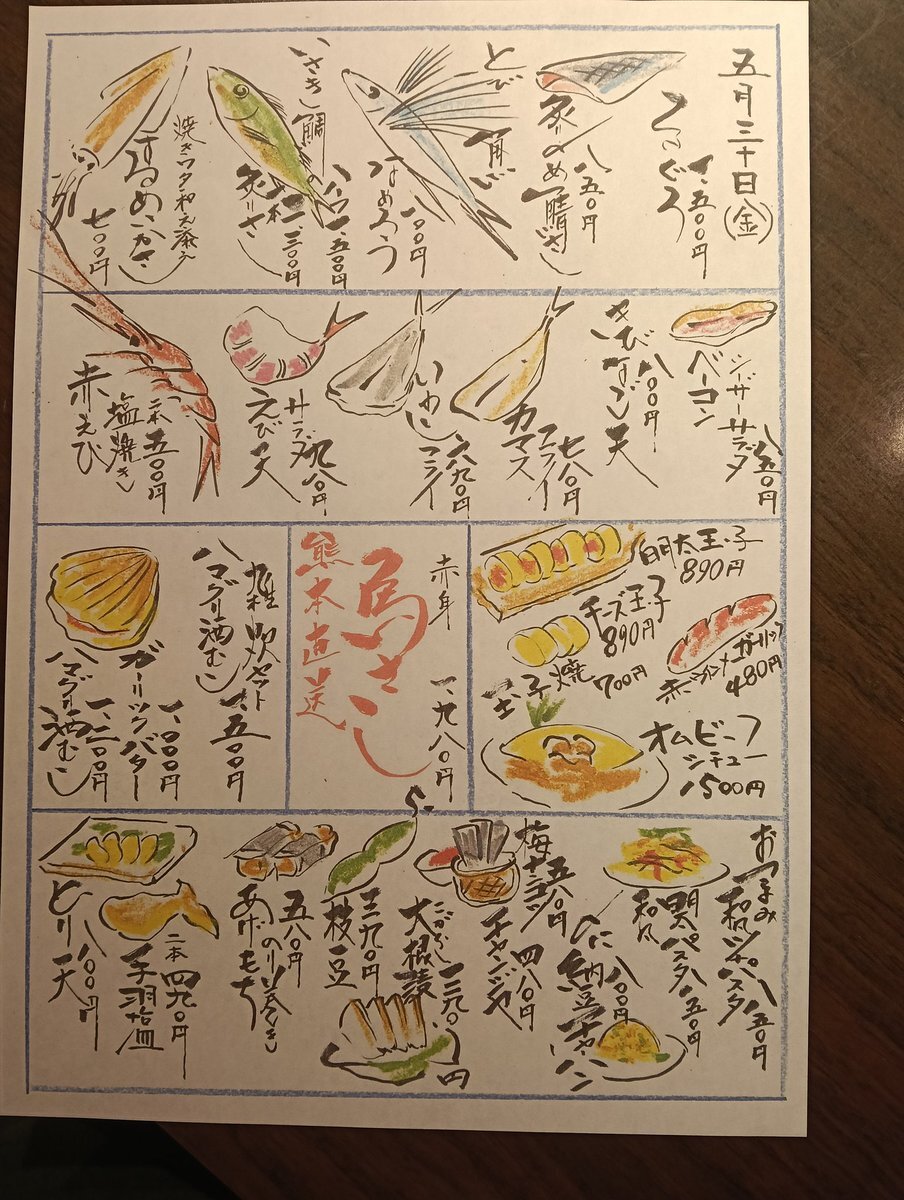 五月三十日(金)
まぐろ
一、五〇〇円
炙りしめ鯖さし
八五〇円
とび魚
なめろう
八〇〇円
いさき鯛
一、五〇〇円
炙りさし
一、三〇〇円
焼きワタ和え添え
するめいかさし
七〇〇円
ベーコン
シーザーサラダ
八五〇円
きびなご天
八〇〇円
カマス
フライ
七八〇円
いわし
フライ
六九〇円
サラダ
えび天
九八〇円
赤えび
塩焼き
二本 五〇〇円
明太玉子
890円
チーズ玉子
890円
玉子焼
700円
赤ウインナーガーリック
480円
オムビーフ
シチュー
1500円
赤身
馬さし
熊本直送
一、九八〇円
雑炊セット
ハマグリ酒むし
一、五〇〇円
ガーリックバター
一、〇〇〇円
ハマグリ酒むし
一、二〇〇円
おつまみ
和風ツナパスタ
八五〇円
明太パスタ
和風
八五〇円
納豆チャーハン
八〇〇円
五八〇円
チャンジャ
四八〇円
大根漬
三九〇円
枝豆
三九〇円
あげもち
のり巻き
五八〇円
手羽塩
二本 四九〇円
とり天
八〇〇円